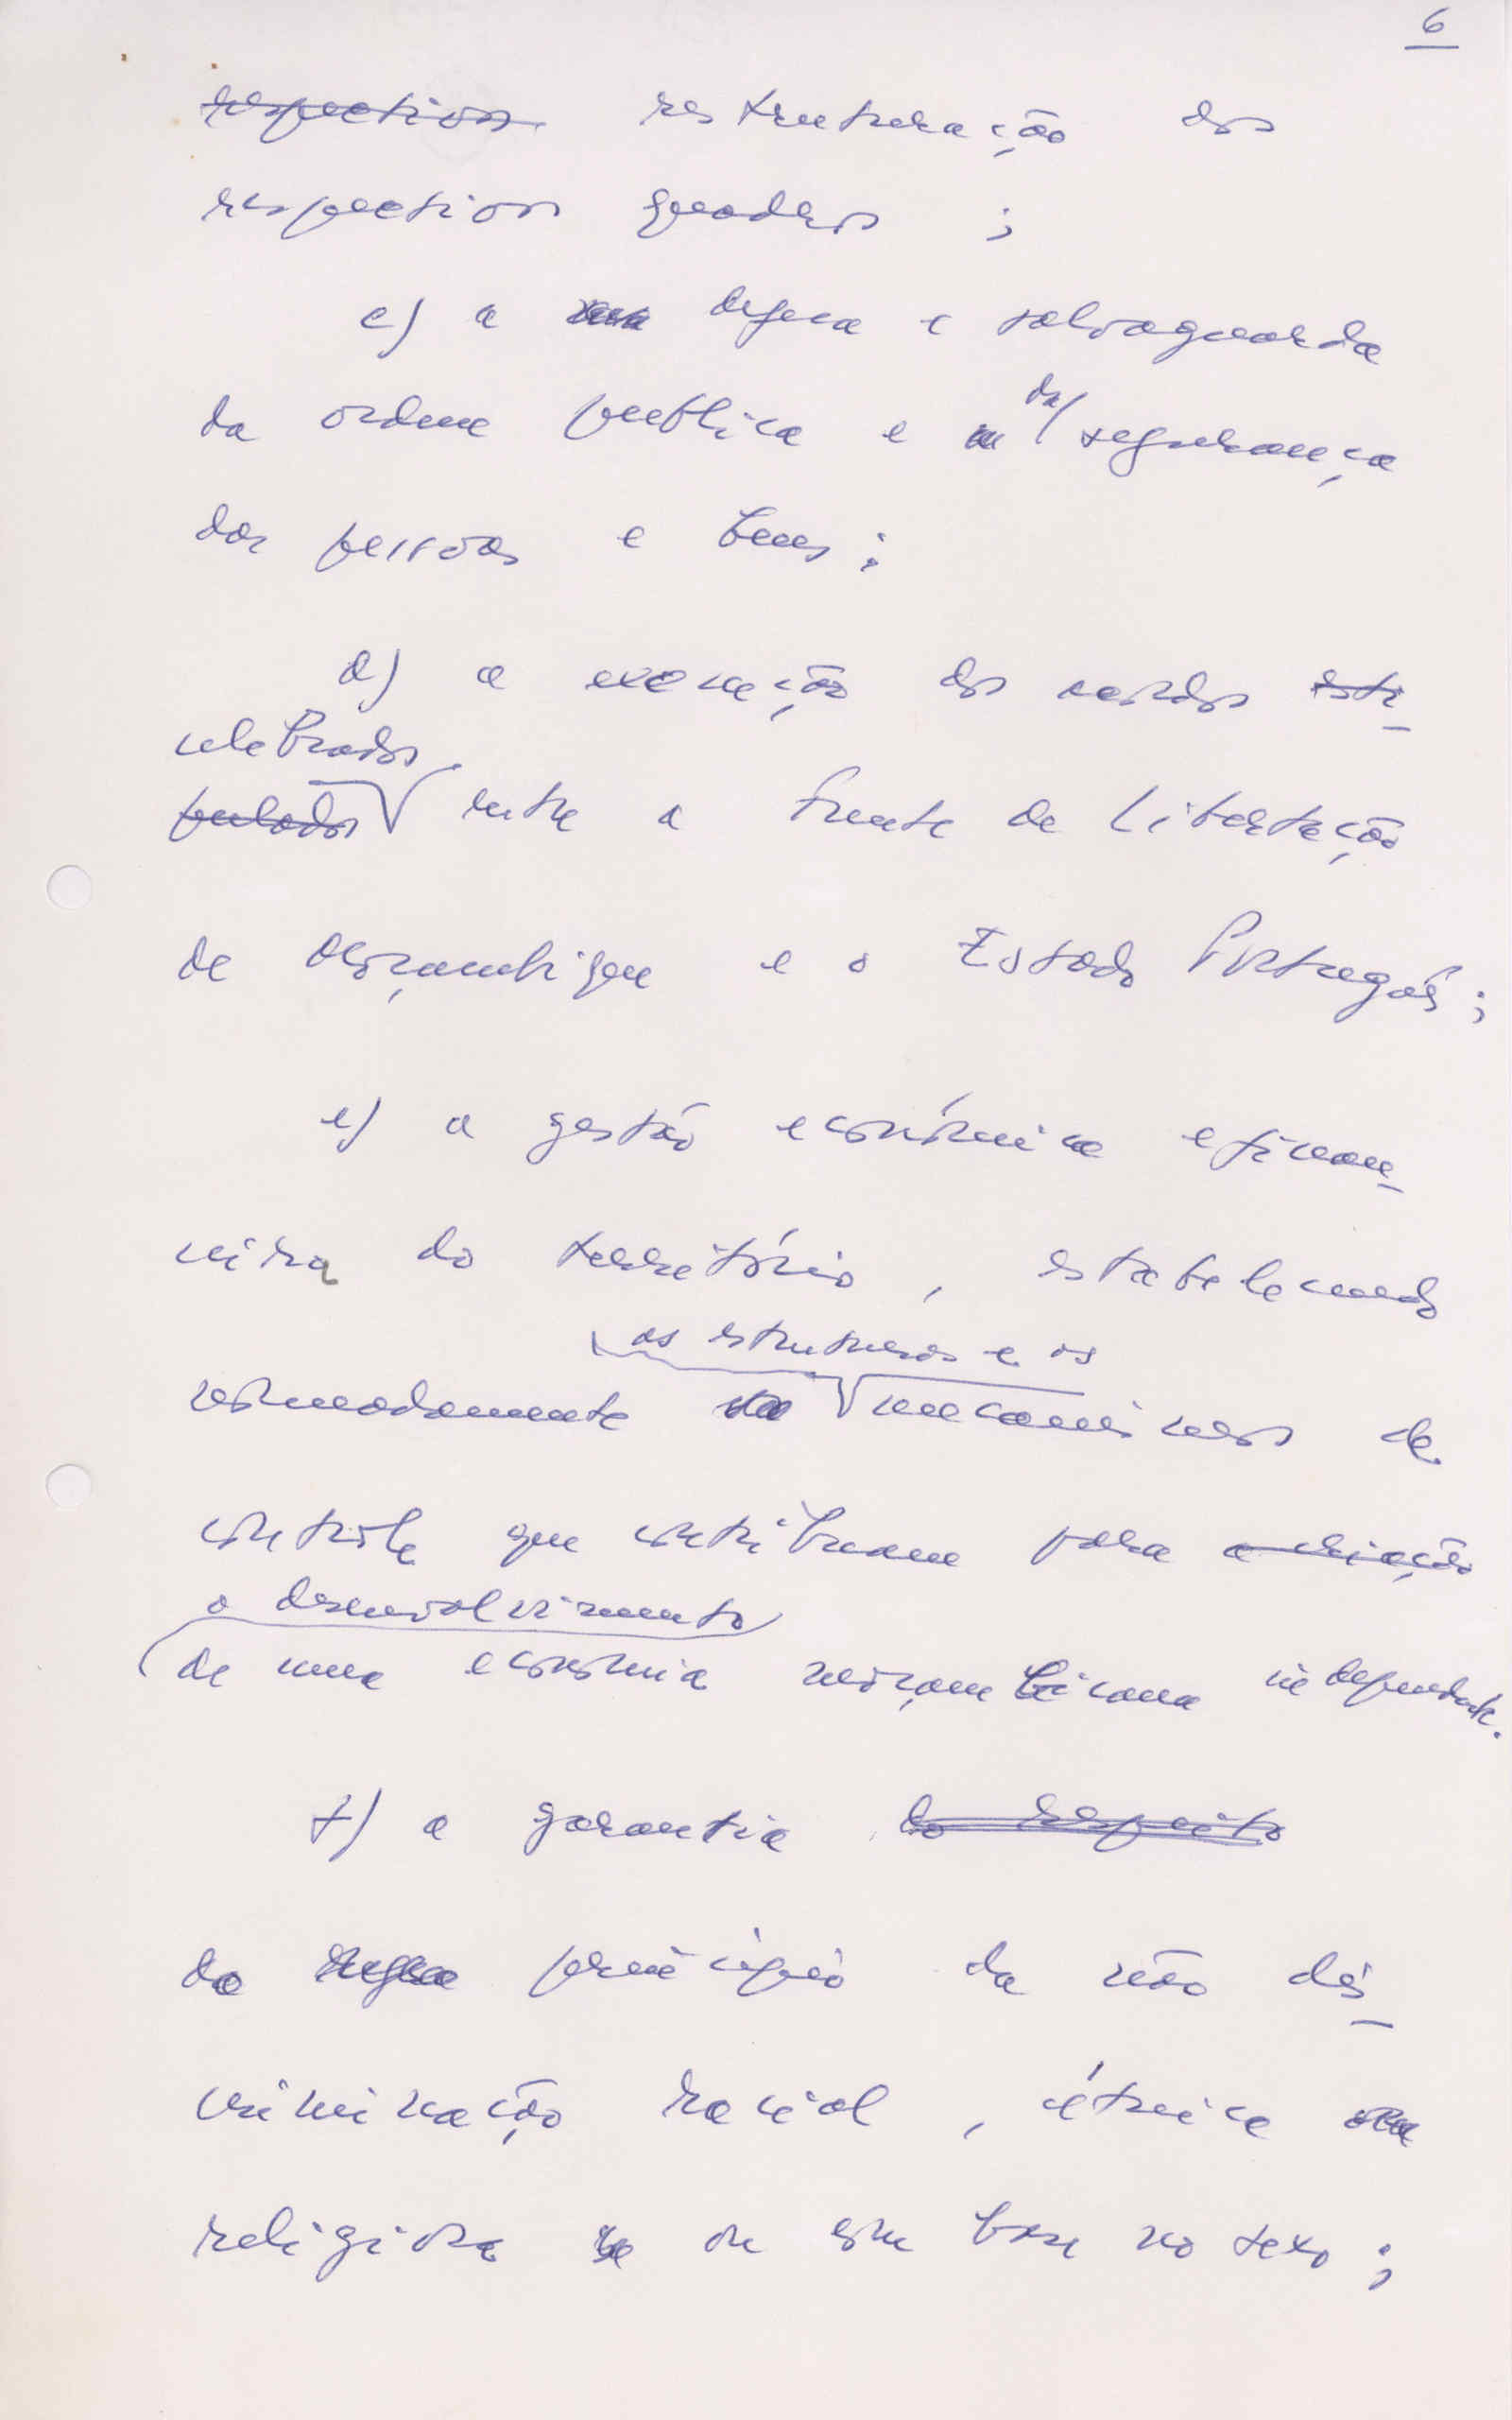 6
respectivos restruturação dos
respectivos quadros ;
c) a defesa e salvaguarda
da ordem publica e da segurança
das pessoas e bens ;
d) a execução dos acordos esti-
celebrados
pulados entre a Frente de Libertação
de Moçambique e o Estado Português ;
e) a gestão económica e finan-
ceira do território , estabelecendo
as estruturas e os
nomeadamente mecanismos de
controle que contribuam para a criação
o desenvolvimento
de uma economia moçambicana independente.
f) a garantia do respeito
do princípio da não dis-
criminação racial , étnica
religiosa ou com base no sexo ;